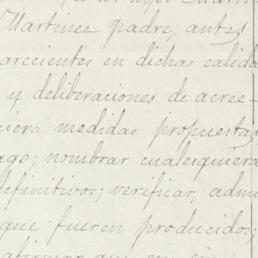 Martinez padre, antes
arecientes en dichas calida
y deliberaciones de acree-
iera medidas propuestas
ago; nombrar cualesquiera
definitivos; verificar, admi
que fueren producidos;
afirmar que